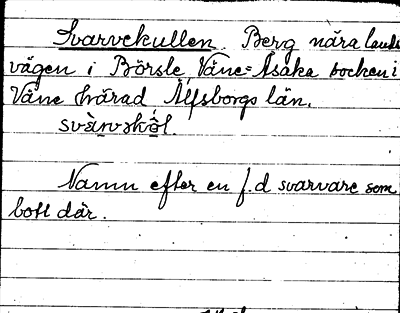 Svarvekullen. Berg nära lands
vägen i Börsle, Väne=Åsaka socken i
Väne härad Älfsborgs län.
svàrvskŏl.
Namn efter en f.d svarvare som
bott där.